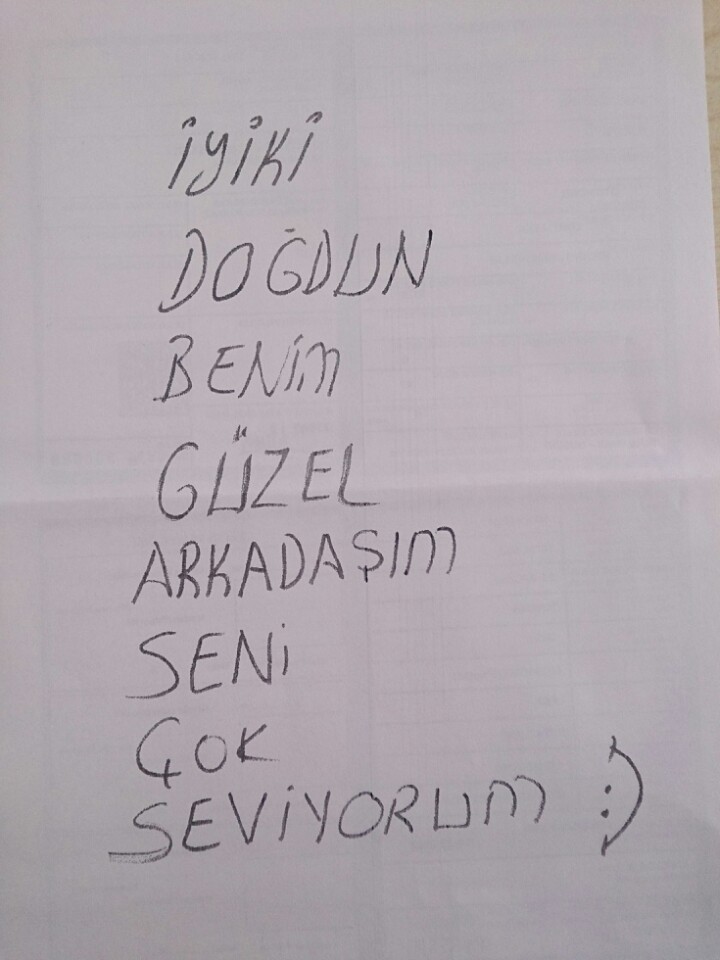 İYİKİ
DOĞDUN
BENİM
GÜZEL
ARKADAŞIM
SENİ
ÇOK
SEVİYORUM :)